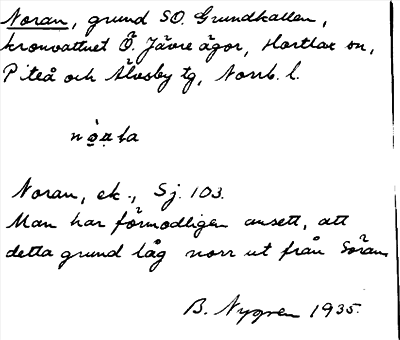 Noran, grund SO. Grundkallen,
kronvattnet Ö. Jävre ägor, Hortlax sn,
Piteå och Älvsby tg, Norrb. l.
Noran, ek., Sj. 103.
Man har förmodligen ansett, att
detta grund låg norr ut från Söran
B. Nygren 1935.